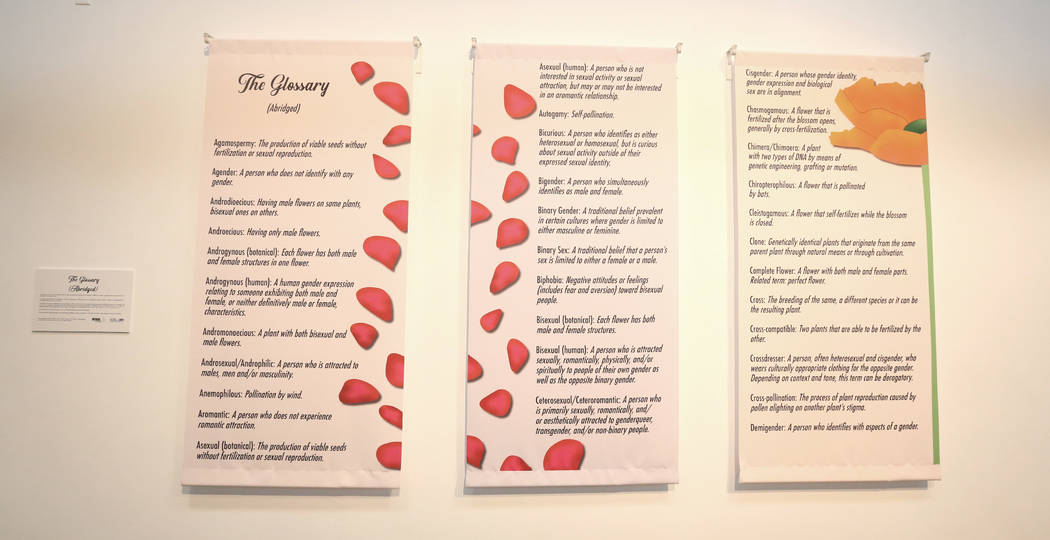 The Glossary
(Abridged)
Agamospermy: The production of viable seeds without
fertilization or sexual reproduction.
Agender: A person who does not identify with any
gender.
Androdioecious: Having male flowers on some plants,
bisexual ones on others.
Androecious: Having only male flowers.
Androgynous (botanical): Each flower has both male
and female structures in one flower.
Androgynous (human): A human gender expression
relating to someone exhibiting both male and
female, or neither definitively male or female,
characteristics.
Andromonoecious: A plant with both bisexual and
male flowers.
Androsexual/Androphilic: A person who is attracted to
males, men and/or masculinity.
Anemophilous: Pollination by wind.
Aromantic: A person who does not experience
romantic attraction.
Asexual (botanical): The production of viable seeds
without fertilization or sexual reproduction.
Asexual (human): A person who is not
interested in sexual activity or sexual
attraction, but may or may not be interested
in an aromantic relationship.
Autogamy: Self-pollination.
Bicurious: A person who identifies as either
heterosexual or homosexual, but is curious
about sexual activity outside of their
expressed sexual identity.
Bigender: A person who simultaneously
identifies as male and female.
Binary Gender: A traditional belief prevalent
in certain cultures where gender is limited to
either masculine or feminine.
Binary Sex: A traditional belief that a person's
sex is limited to either a female or a male.
Biphobia: Negative attitudes or feelings
(includes fear and aversion) toward bisexual
people.
Bisexual (botanical): Each flower has both
male and female structures.
Bisexual (human): A person who is attracted
sexually, romantically, physically, and/or
spiritually to people of their own gender as
well as the opposite binary gender.
Ceterosexual/Ceteroromantic: A person who
is primarily sexually, romantically, and/
or aesthetically attracted to genderqueer,
transgender, and/or non-binary people.
Cisgender: A person whose gender identity,
gender expression and biological
sex are in alignment.
Chasmogamous: A flower that is
fertilized after the blossom opens,
generally by cross-fertilization.
Chimera/Chimaera: A plant
with two types of DNA by means of
genetic engineering, grafting or mutation.
Chiropterophilous: A flower that is pollinated
by bats.
Cleistogamous: A flower that self-fertilizes while the blossom
is closed.
Clone: Genetically identical plants that originate from the same
parent plant through natural means or through cultivation.
Complete Flower: A flower with both male and female parts.
Related term: perfect flower.
Cross: The breeding of the same, a different species or it can be
the resulting plant.
Cross-compatible: Two plants that are able to be fertilized by the
other.
Crossdresser: A person, often heterosexual and cisgender, who
wears culturally appropriate clothing for the opposite gender.
Depending on context and tone, this term can be derogatory.
Cross-pollination: The process of plant reproduction caused by
pollen alighting on another plant's stigma.
Demigender: A person who identifies with aspects of a gender.
The Glossary
(Abridged)